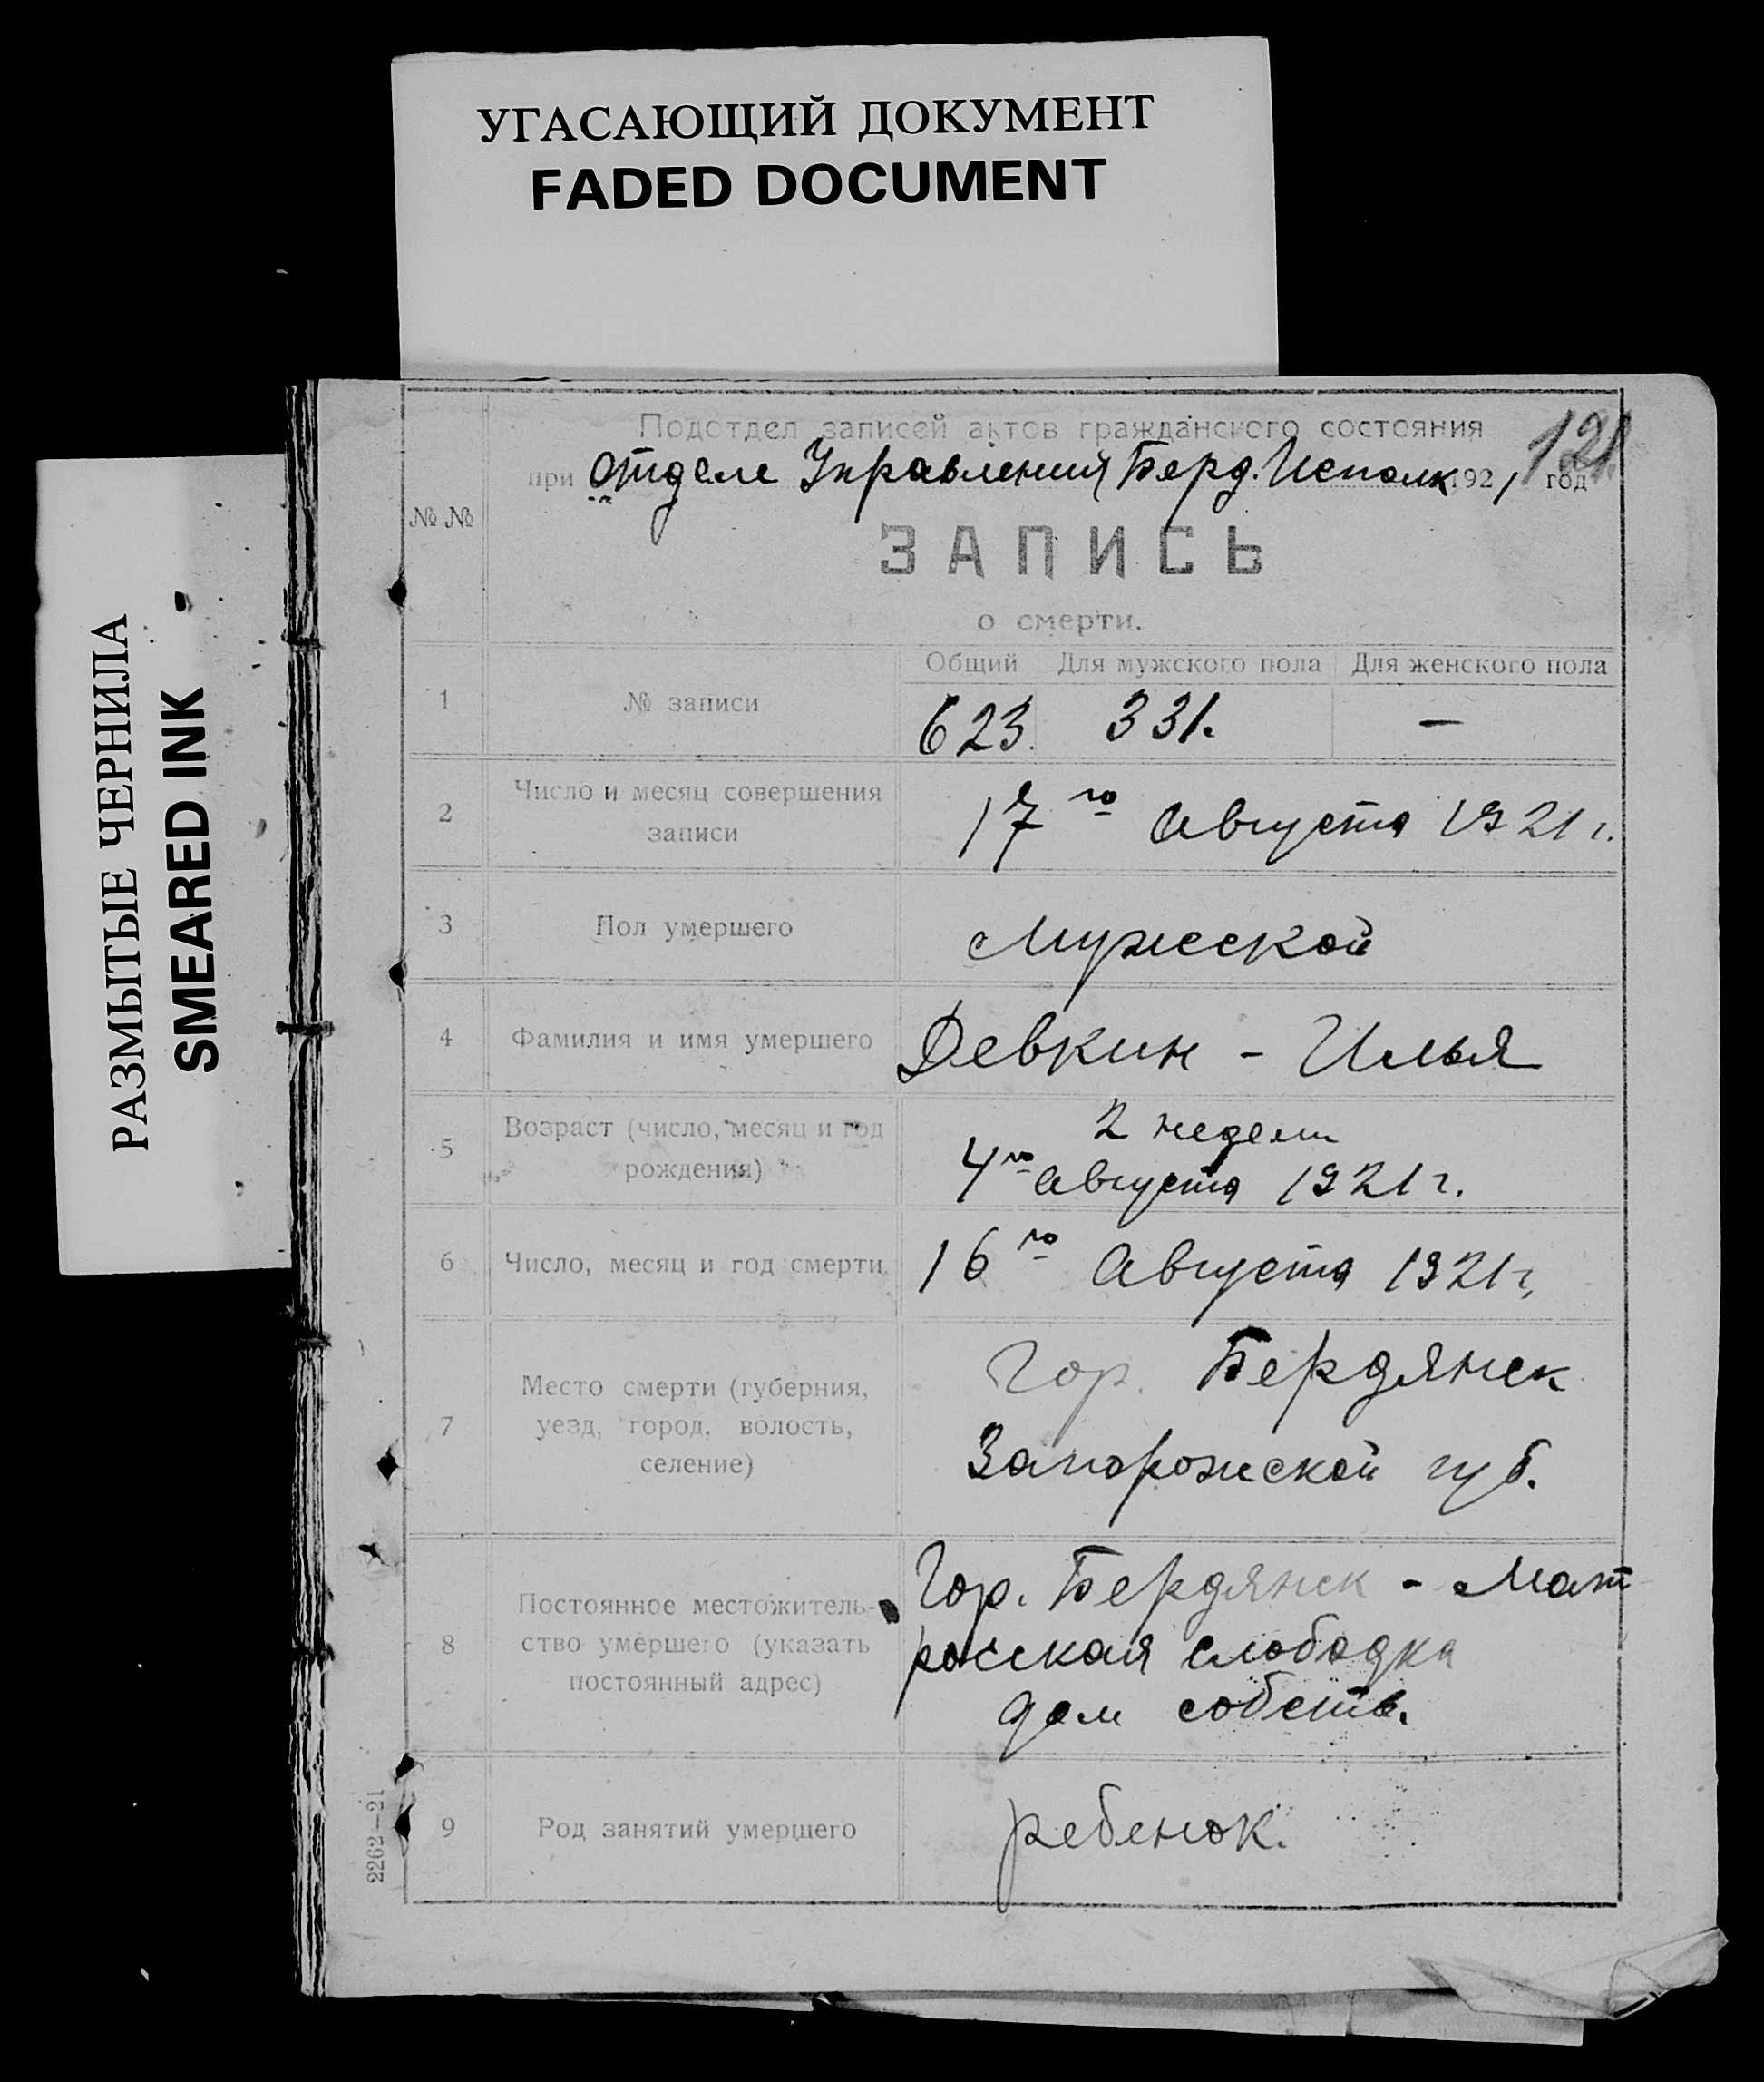 УГАСАЮЩИЙ ДОКУМЕНТ
FADED DOCUMENT
РАЗМЫТЫЕ ЧЕРНИЛА
SMEARED INK
121
Подотдел записей актов гражданского состояния
при Отделе Управления Берд. Исполк 1921 год
№ №
ЗАПИСЬ
о смерти.
Общий Для мужского пола Для женского пола
1 № записи 623. 331. —
2 Число и месяц совершения
записи
17го Августа 1921 г.
3 Пол умершего Мужской
4 Фамилия и имя умершего Девкин - Илья
5 Возраст (число, месяц и год
рождения)
2 недели
4го Августа 1921 г.
6 Число, месяц и год смерти 16го Августа 1921 г.
7 Место смерти (губерния,
уезд, город, волость,
селение)
Гор. Бердянск
Запорожской губ.
8 Постоянное местожитель-
ство умершего (указать
постоянный адрес)
Гор. Бердянск - Мат
росская слободка
дом собств.
9 Род занятий умершего ребенок.
2262—21